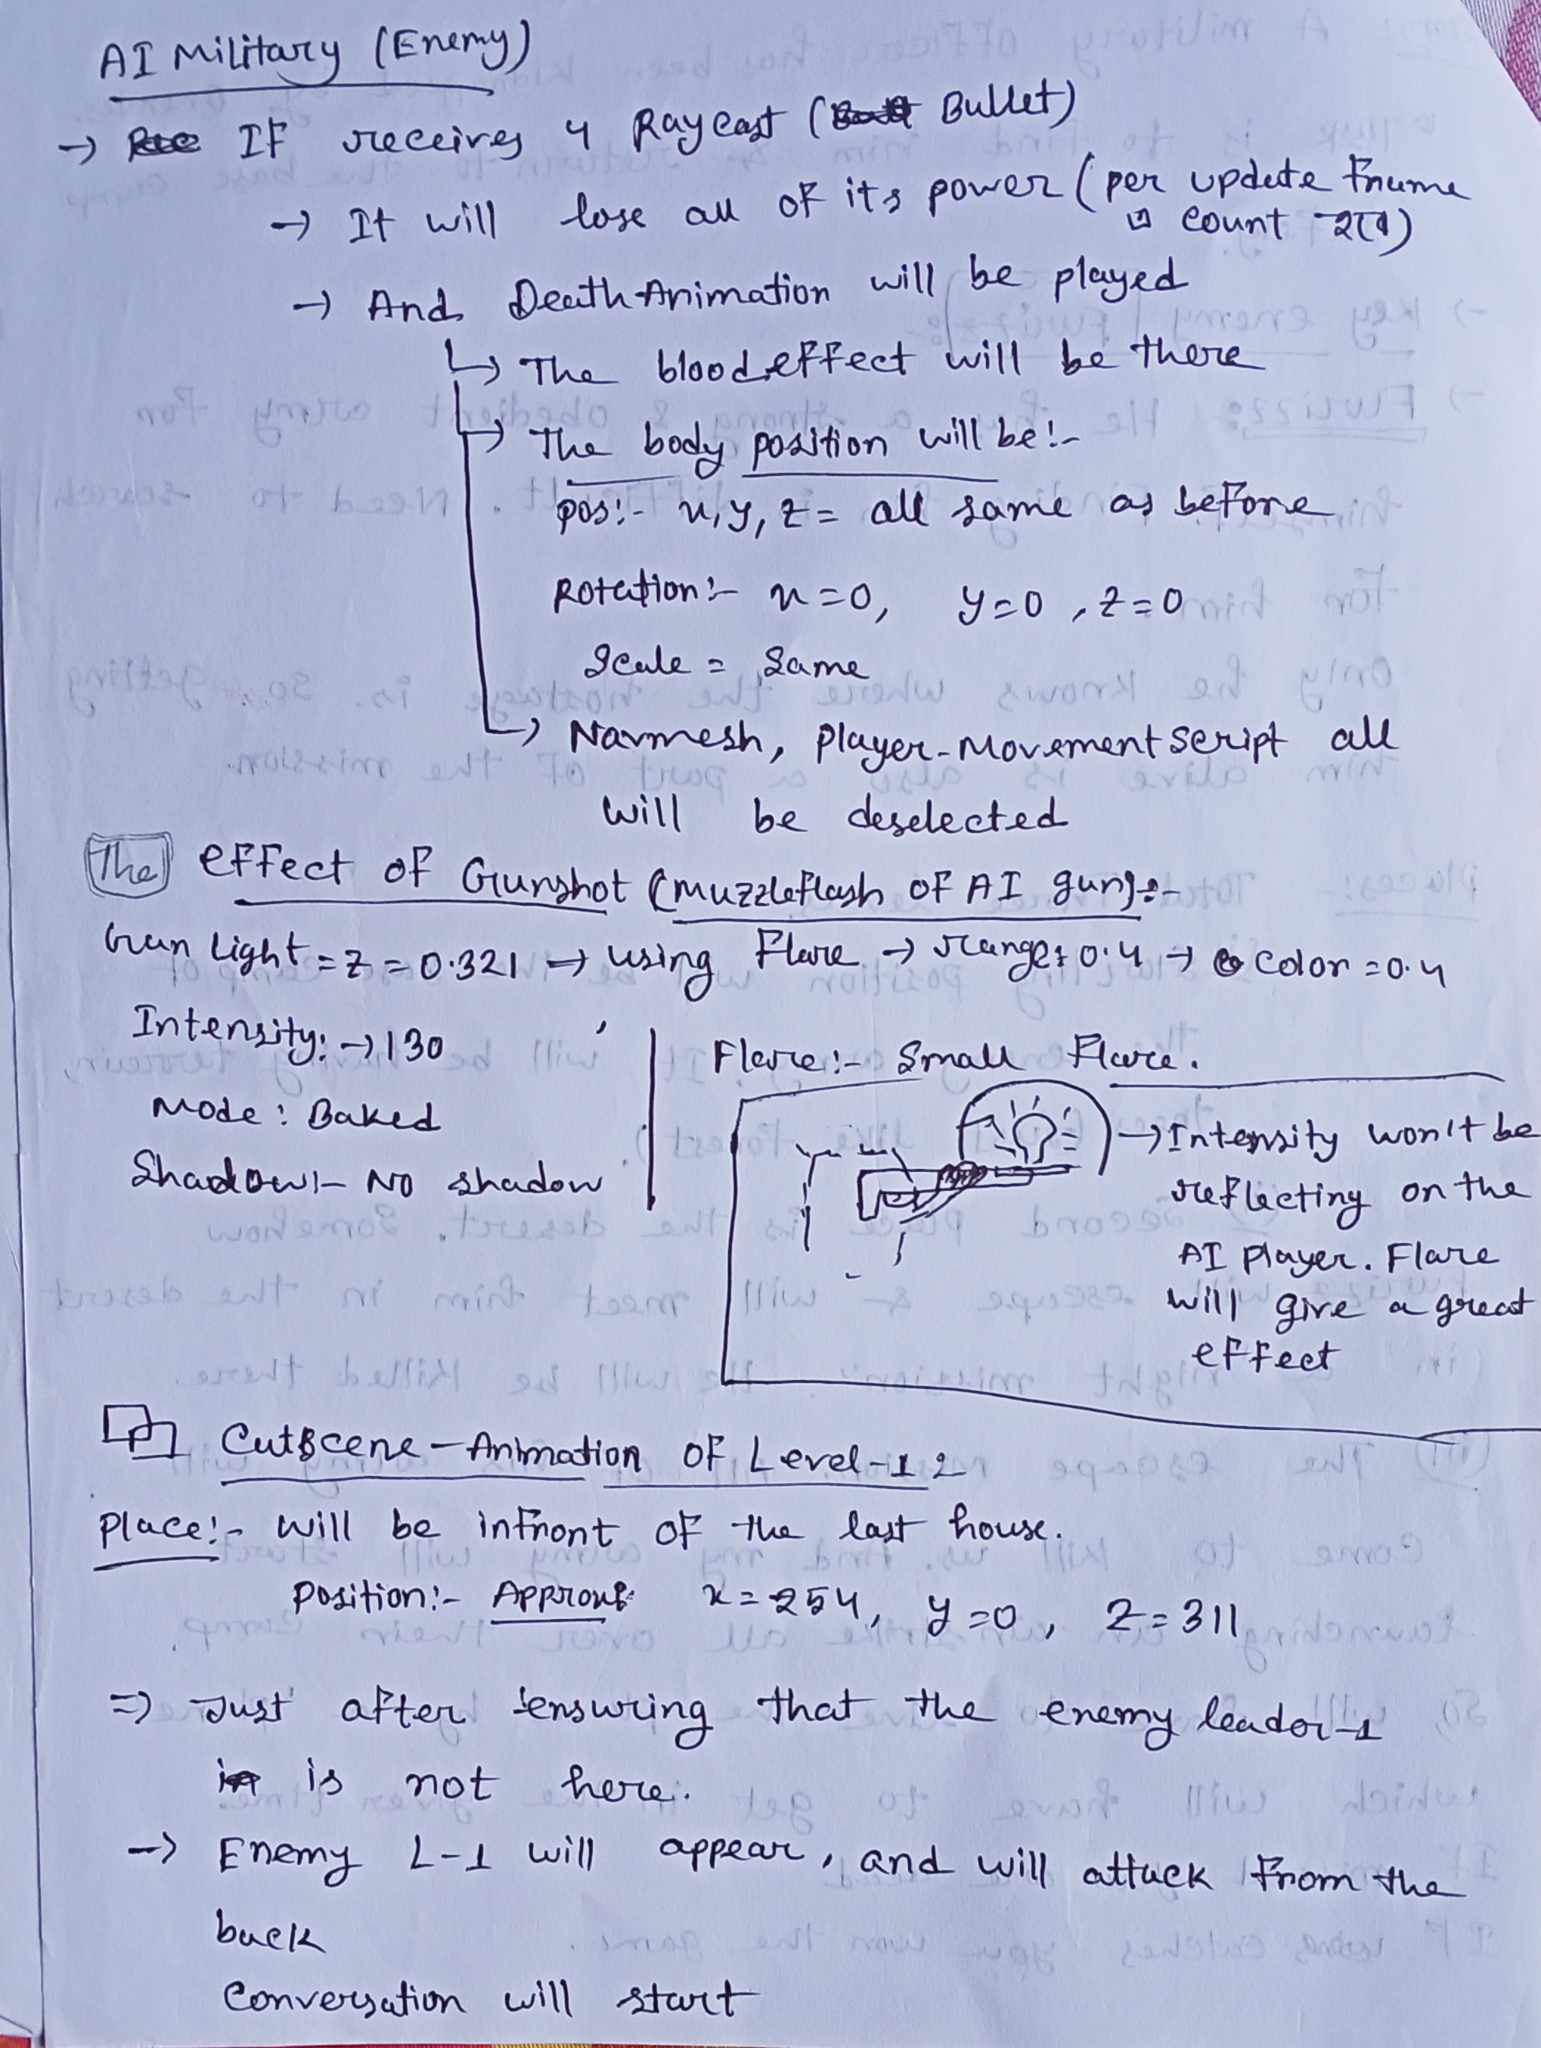 AI Military (Enemy)
→ IF receives 4 Raycast (Bullet)
→ It will lose all of its power (per update Frame
count
→ And Death Animation will be played
↳ The blood effect will be there
→ The body position will be:-
pos:- x, y, z = all same as before
Rotation:- x=0, y=0, z=0
Scale = Same
↳ Navmesh, Player-Movement Script all
will be deselected
The effect of Gunshot (muzzleflash of AI gun):-
Gun Light = z = 0.321 → using Flare → range: 0.4 → color = 0.4
Intensity: → 130
Mode: Baked
Shadow:- No shadow
Flare:- Small Flare.
→ Intensity won't be
reflecting on the
AI Player. Flare
will give a great
effect
Cutscene-Animation of Level-1 2
Place:- Will be infront of the last house.
Position:- Approx x = 254, y = 0, z = 311
⇒ Just after ensuring that the enemy leader-1
is not here.
→ Enemy L-1 will appear, and will attack from the
back
Conversation will start